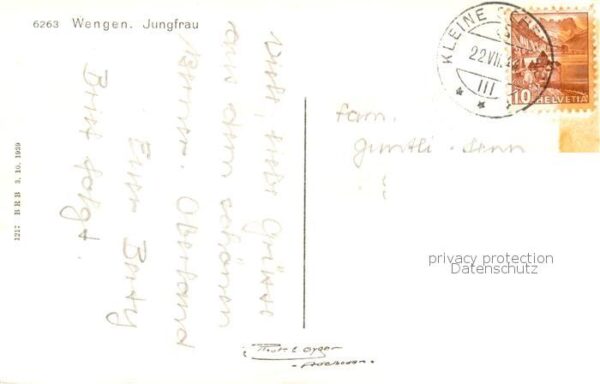 6263 Wengen. Jungfrau
KLEINE SCHEI
22.VII.
III
10 HELVETIA
1217 BRB 3. 10. 1939
Viele, liebe Grüsse
aus dem schönen
Berner. Oberland
Eure Berty
Brief folgt.
Fam.
Guntli-Senn
privacy protection
Datenschutz